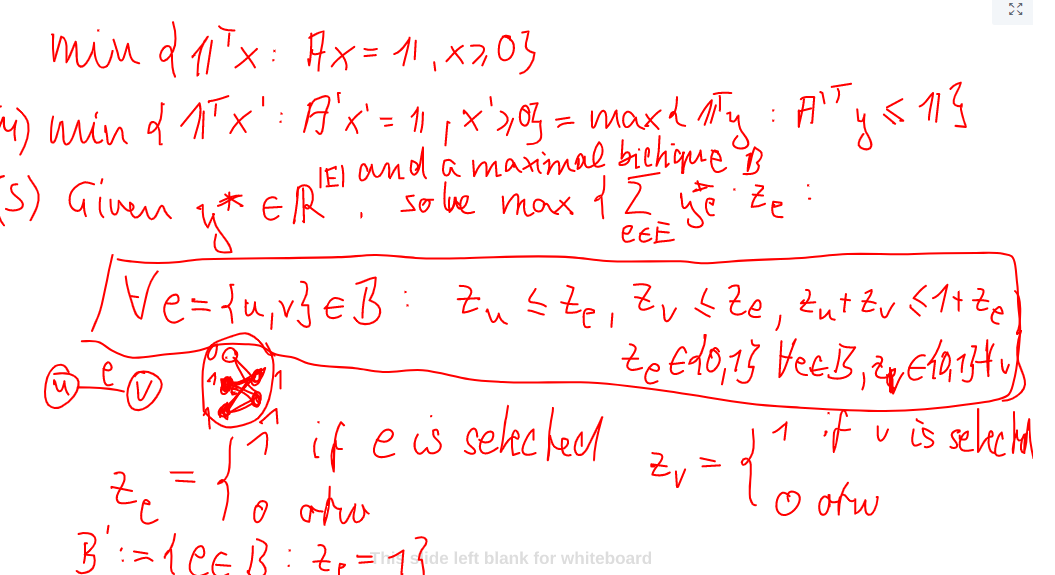 min { 𝟙ᵀx : Ax = 𝟙, x ≥ 0 }
(M) min { 𝟙ᵀx' : A'x' = 𝟙, x' ≥ 0 } = max { 𝟙ᵀy : A'ᵀy ≤ 𝟙 }
and a maximal biclique B
(S) Given y* ∈ ℝ^|E|, solve max { Σ_{e∈E} y*_e · z_e :
∀e = {u,v} ∈ B : z_u ≤ z_e, z_v ≤ z_e, z_u + z_v ≤ 1 + z_e
z_e ∈ {0,1} ∀e∈B, z_v ∈ {0,1} ∀v }
u e v
0
1 1
1 1
z_e = { 1 if e is selected
0 otw
z_v = { 1 if v is selected
0 otw
B' := { e ∈ B : z_e = 1 }
This slide left blank for whiteboard